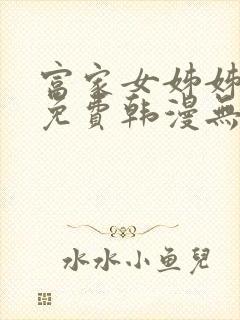 富家女姊姊
免費韩漫無
水水小鱼兒